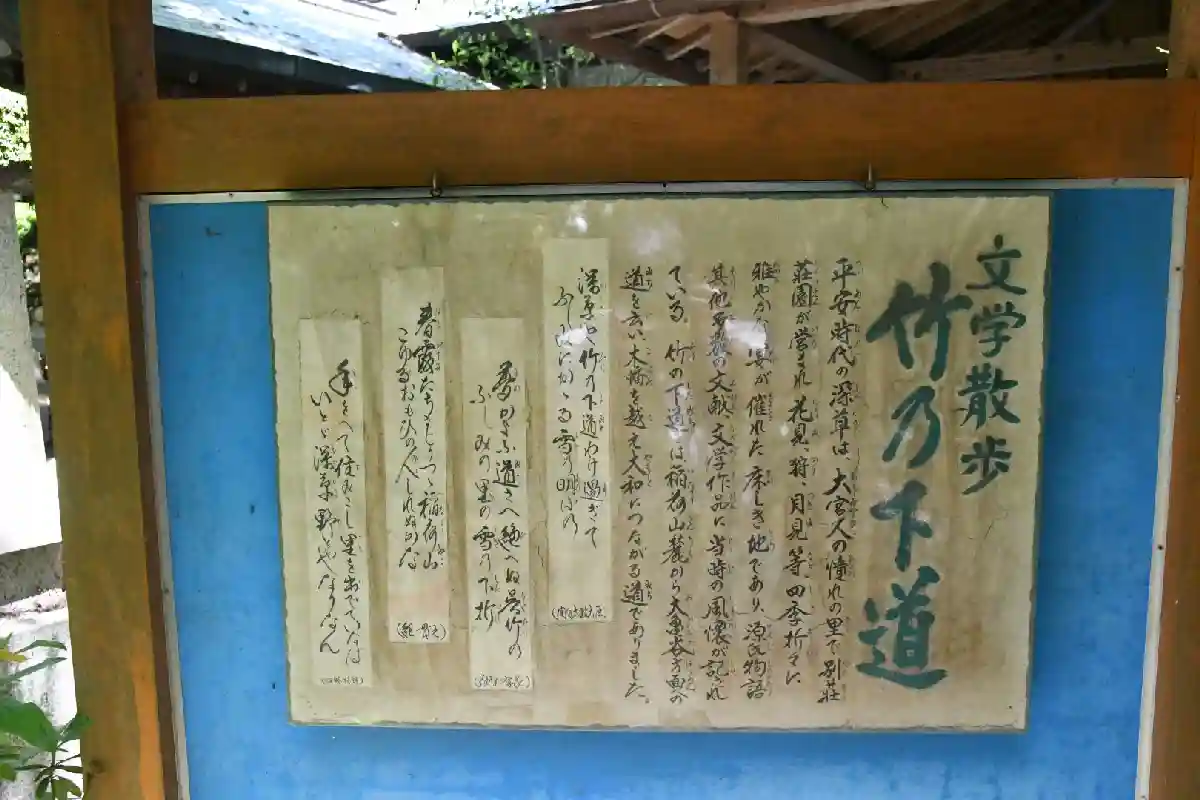 文学散歩
竹乃下道
平安時代の深草は、大宮人の憧れの里で別荘
荘園が営まれ花見、狩、月見等、四季折々に
雅やかな宴が催れた床しき地であり、源氏物語
其他多数の文献、文学作品に当時の風懐が記され
ている。竹の下道とは稲荷山麓から大亀谷方面への
道を云い、木幡を越え大和につながる道でありました。
深草や竹の下道わけ過ぎて
ふしみにかゝる雪の明ぼの
夢かよふ道さへ絶へぬ呉竹の
ふしみの里の雪の下折
春霞たちまじりつつ稲荷山
こゆるおもひの人しれぬかな
年をへて住みこし里を出でていなば
いとど深草野とやなりなん